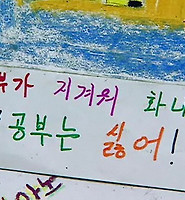 부가 지겨워 화나
공부는 싫어!